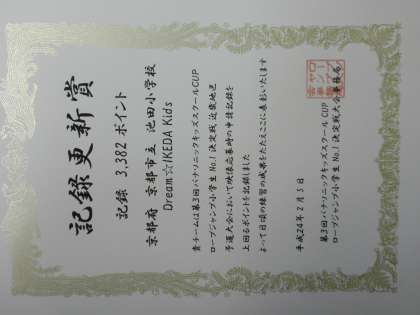 記録更新賞
記録 3,382 ポイント
京都府 京都市立 池田小学校
Dream☆IKEDA Kids
貴チームは第3回パナソニックキッズスクールCUP
ロープジャンプ小学生No.1決定戦 近畿地区
予選大会において映像応募時の申請記録を
上回るポイントを記録しました
よって日頃の練習の成果をたたえここに表彰いたします
平成24年2月5日
第3回パナソニックキッズスクールCUP
ロープジャンプ小学生No.1決定戦大会事務局